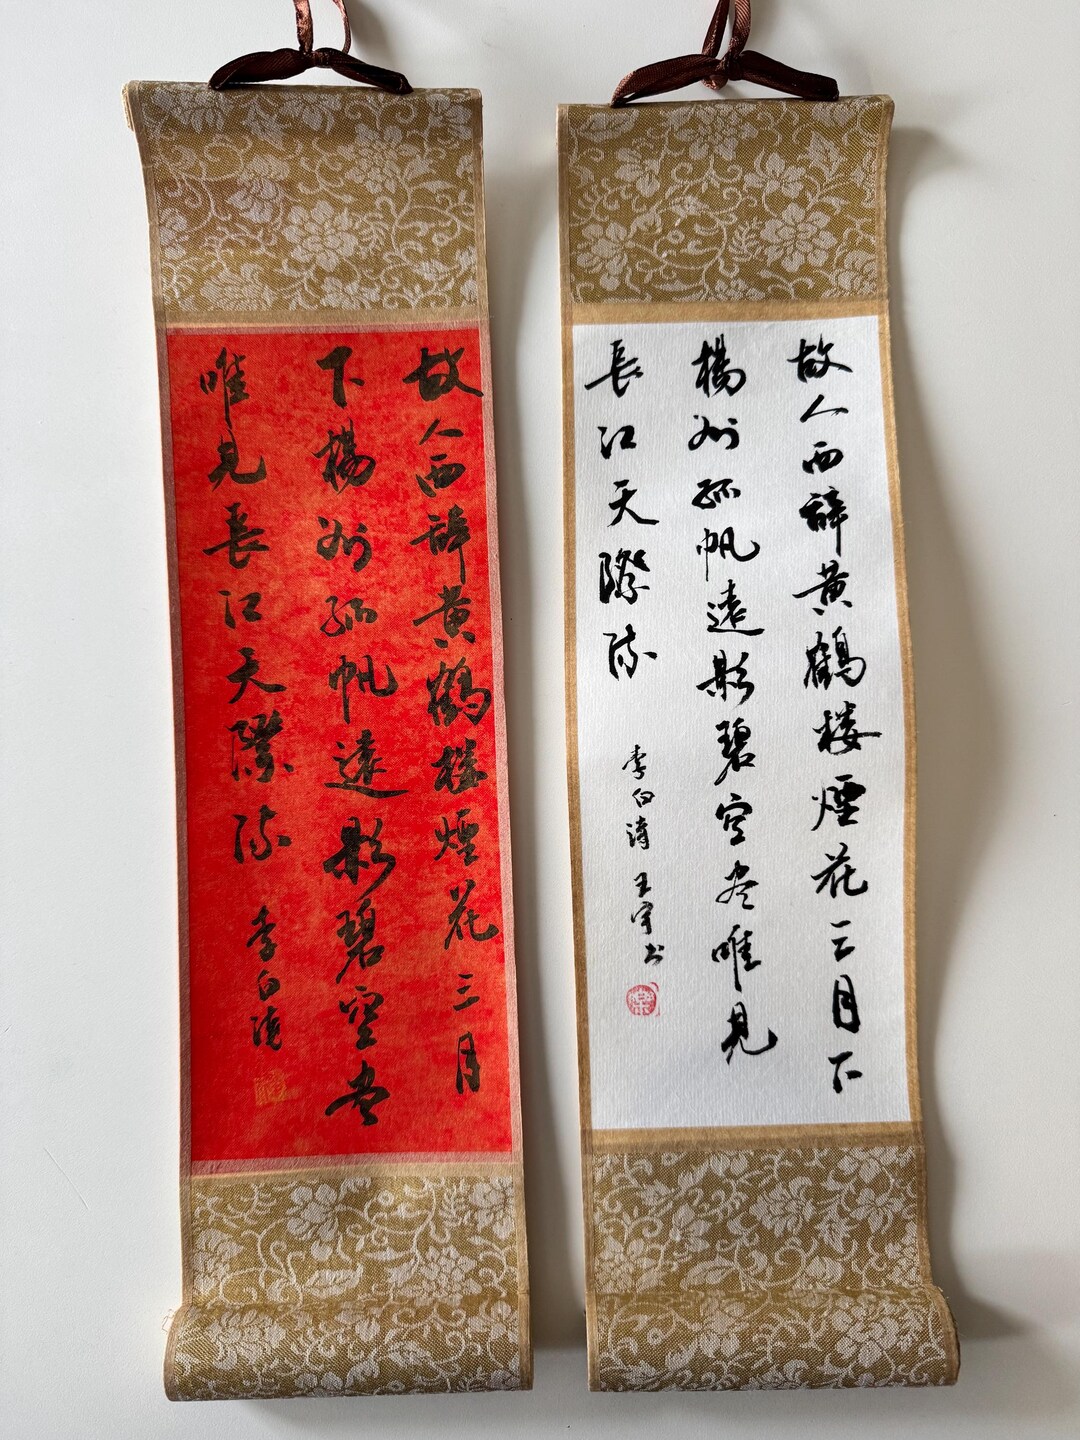 故人西辭黄鶴楼煙花三月
下楊州孤帆遠影碧空尽
唯見長江天際流
李白詩
故人西辭黄鶴楼煙花三月下
楊州孤帆遠影碧空尽唯見
長江天際流
李白詩 王宇书